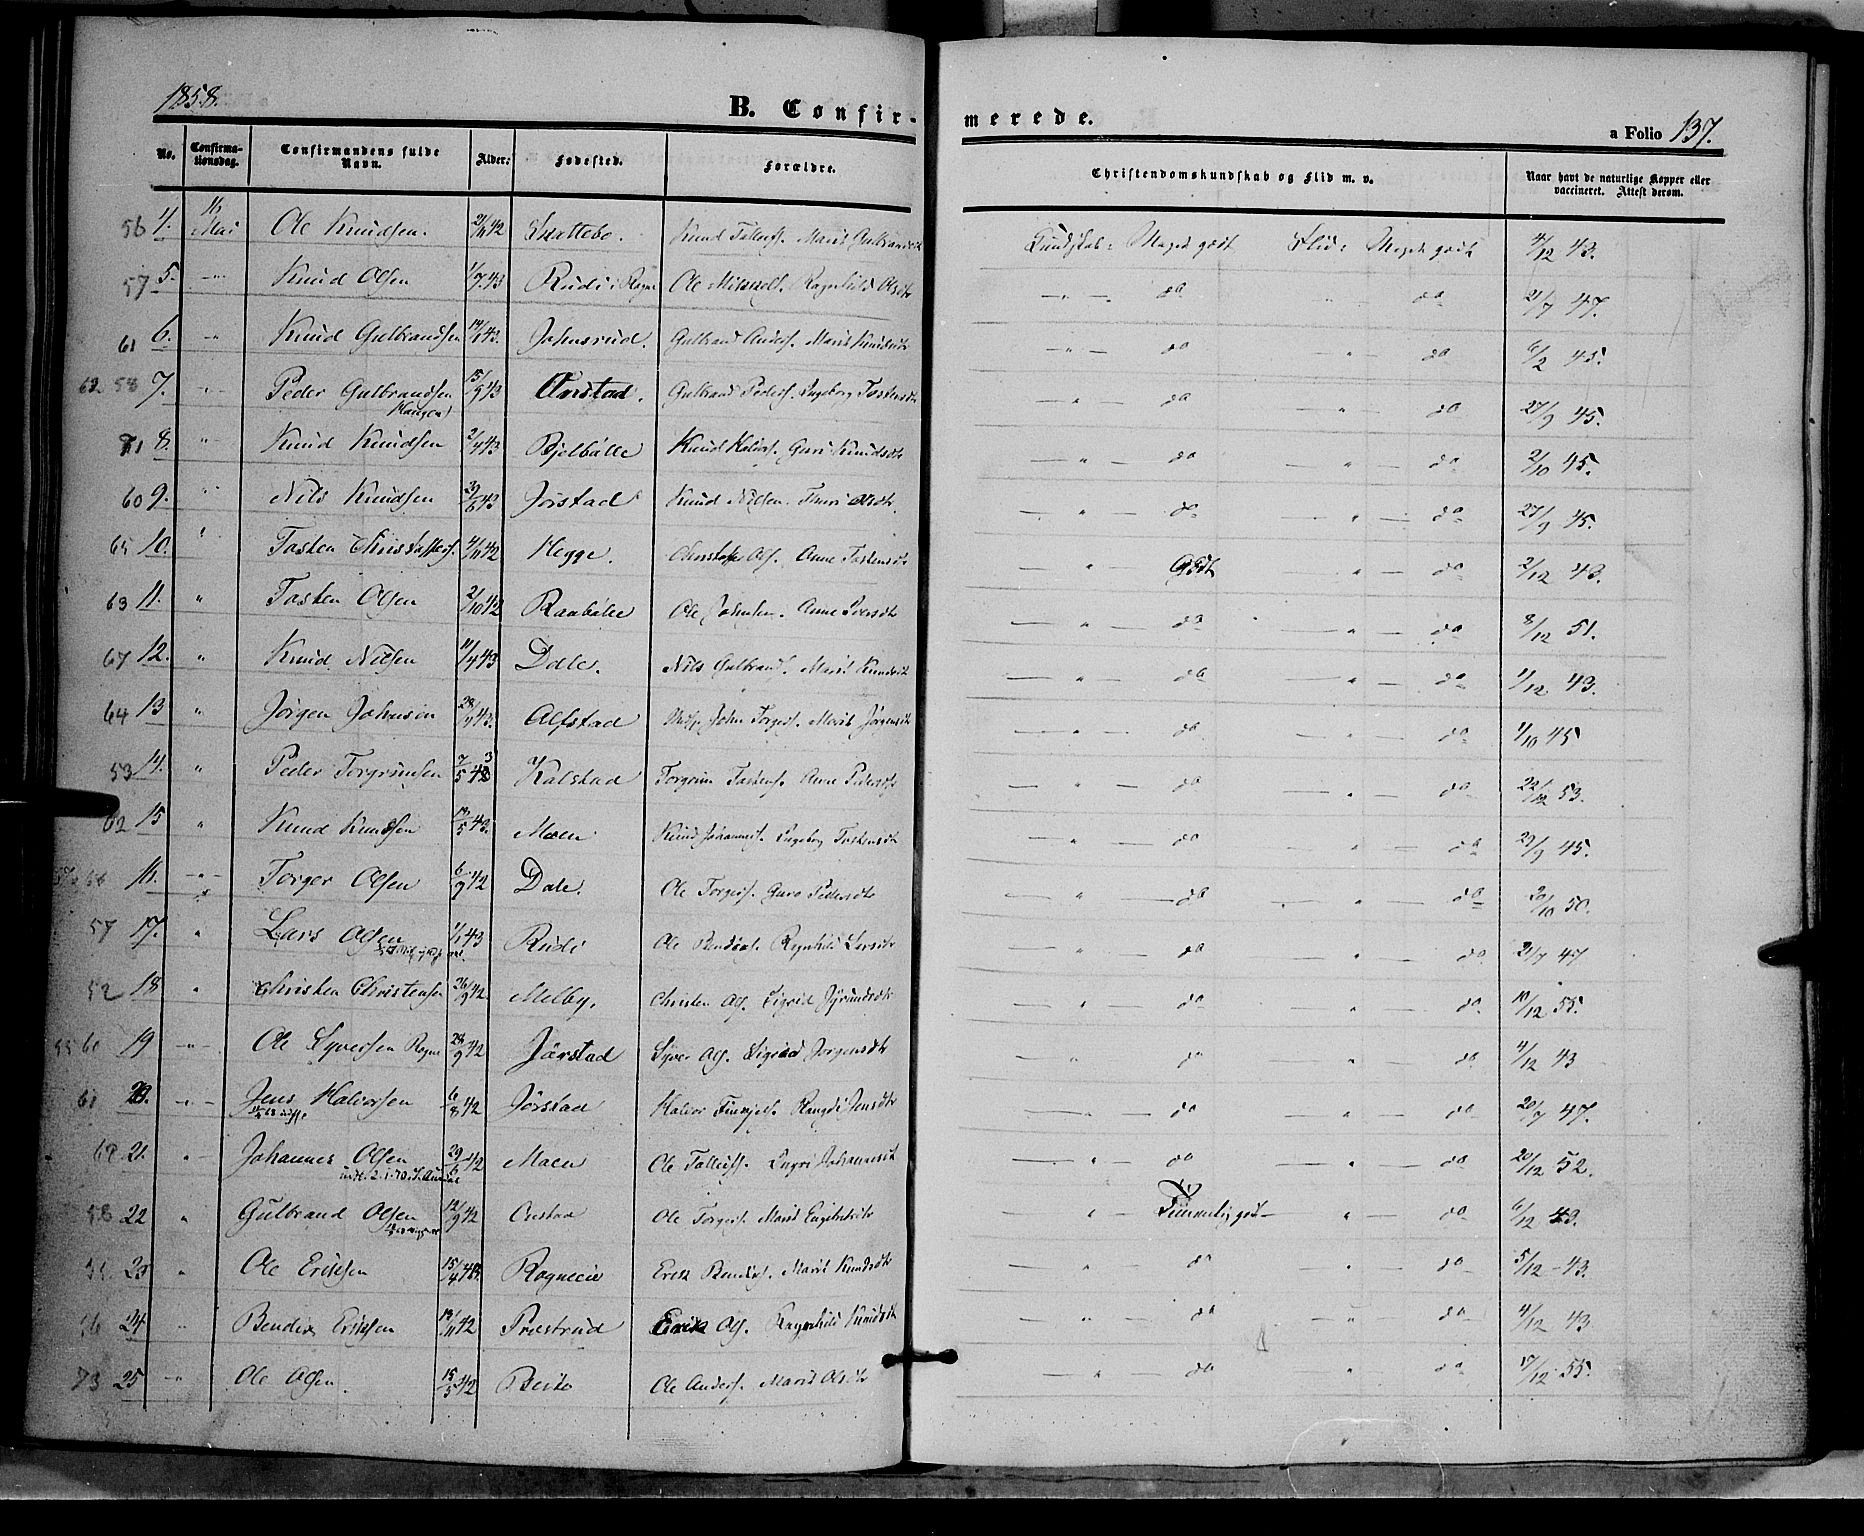 1858.
B. Confirmerede.
a Folio 137.
No. Confirmationsdag. Confirmandens fulde Navn. Alder: Fødested. Forældre. Christendomskundskab og Flid m. v. Naar havt de naturlige Kopper eller vaccineret. Attest derom.
56 4. 16 Mai Ole Knudsen. 21/11 42 Skattebo. Knud Marit Gulbrandsdtr Kundskab: Meget godt Flid: Meget godt 4/12 43.
57 5. -"- Knud Olsen 1/7 43 Rudi i Rogne Ole Ragnhild Olsdtr -"- do " do 21/7 47.
61 6. -"- Knud Gulbrandsen 14/1 43. Johnsrud. Gulbrand Anders. Marit Knudsdtr -"- do -"- do 6/2 45.
62 58 7. -"- Peder Gulbrandsen (Haugen) 15/9 43 Gulbrand Peders. Ingeborg Tostensdtr -"- do -"- do 27/9 45.
71 8. -"- Knud Knudsen 2/4 43 Bjelbölle Knud Halvors. Guri Knudsdtr -"- do -"- do 2/10 45.
60 9. " Nils Knudsen 43 Jörstad Knud Nilsen. Thuri Olsdtr. -"- do -"- do 27/9 45.
65 10. " Tosten Christoffers. 4/11 42 Hegge. Christoffer Ols. Anne Tostensdtr -"- Godt " do 2/12 43.
63 11. " Tosten Olsen 2/10 42 Raabölle Ole Johnsen. Anne Iversdtr -"- do -"- do 8/12 51.
67 12. " Knud Nilsen 11/4 43 Dale. Nils Gulbrands. Marit Knudsdtr -"- do -"- do 1/12 43.
64 13 " Jörgen Johnsen 28/4 43. Alfstad John Torgers. Marit Jörgensdtr -"- do -"- do 1/10 45
53 14. " Peder Torgrimsen 7/5 43 Kalstad Torgrim Tostens. Anne Pedersdtr -"- do -"- do 22/12 53.
62 15 " Knud Knudsen 19/5 43. Moen Knud Johannes. Ingeborg Tostensdtr -"- do -"- do 29/9 45.
16. -"- Torger Olsen 6/9 42 Dale. Ole Torgers. Guro Pedersdtr -"- do -"- do 20/10 50.
57 17. " Lars Olsen 1/1 43 Rudi Ole Ragnhild Larsdtr -"- do -"- do 21/7 47
52 18 " Christen Christensen 26/9 42. Melby. Christen Ols. Sigrid -"- do " do 10/12 55.
19 -"- Ole Syversen Rogne 28/9 42 Jörstad Syver Ols. Sigrid Jörgensdtr " do " do 4/12 43
61 20. -"- Jens Halvorsen 6/8 42 Jörstad Halvor Rangdi Jensdtr -"- do " do 20/7 47.
69 21. " Johannes Olsen 29/6 42 Moen Ole Ingri Johannesdtr -"- do -"- do 20/12 52.
58 22 " Gulbrand Olsen 12/9 42 Ole Torgers. Marit Engebretsdtr " Temmelig godt " do 6/12 43.
23 " Ole Eriksen 15/4 43. Rogneeie Erik Marit Knudsdtr " do " do 5/12 - 43.
24 " Bendix Eriksen 19/11 42 Prestrud Erik Ols. Ragnhild Knudsdtr " do " do 4/12 43
73 25 -"- Ole Olsen. 15/5 42 Beito Ole Anders. Marit Olsdtr " do " do 17/12 55.